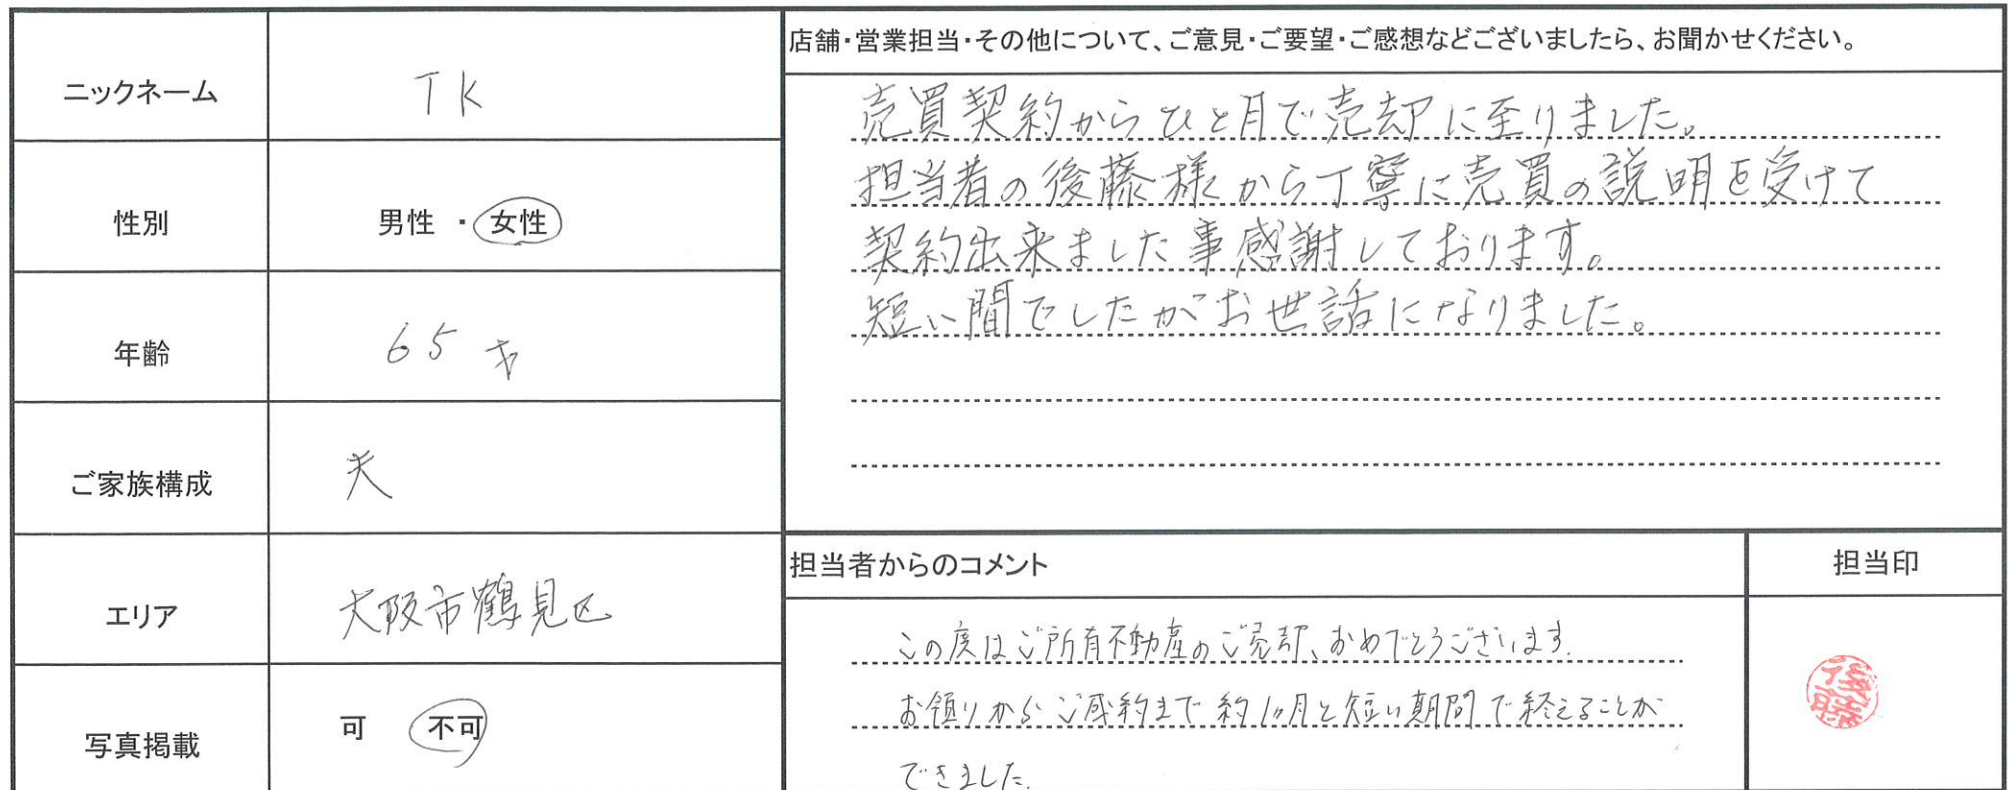 ニックネーム
TK
性別
男性 ・ 女性
年齢
65才
ご家族構成
夫
エリア
大阪市鶴見区
写真掲載
可 不可
店舗・営業担当・その他について、ご意見・ご要望・ご感想などございましたら、お聞かせください。
売買契約からひと月で売却に至りました。
担当者の後藤様から丁寧に売買の説明を受けて
契約出来ました事感謝しております。
短い間でしたがお世話になりました。
担当者からのコメント
この度はご所有不動産のご売却、おめでとうございます.
お預りからご成約まで約1ヶ月と短い期間で終えることが
できました.
担当印
後藤